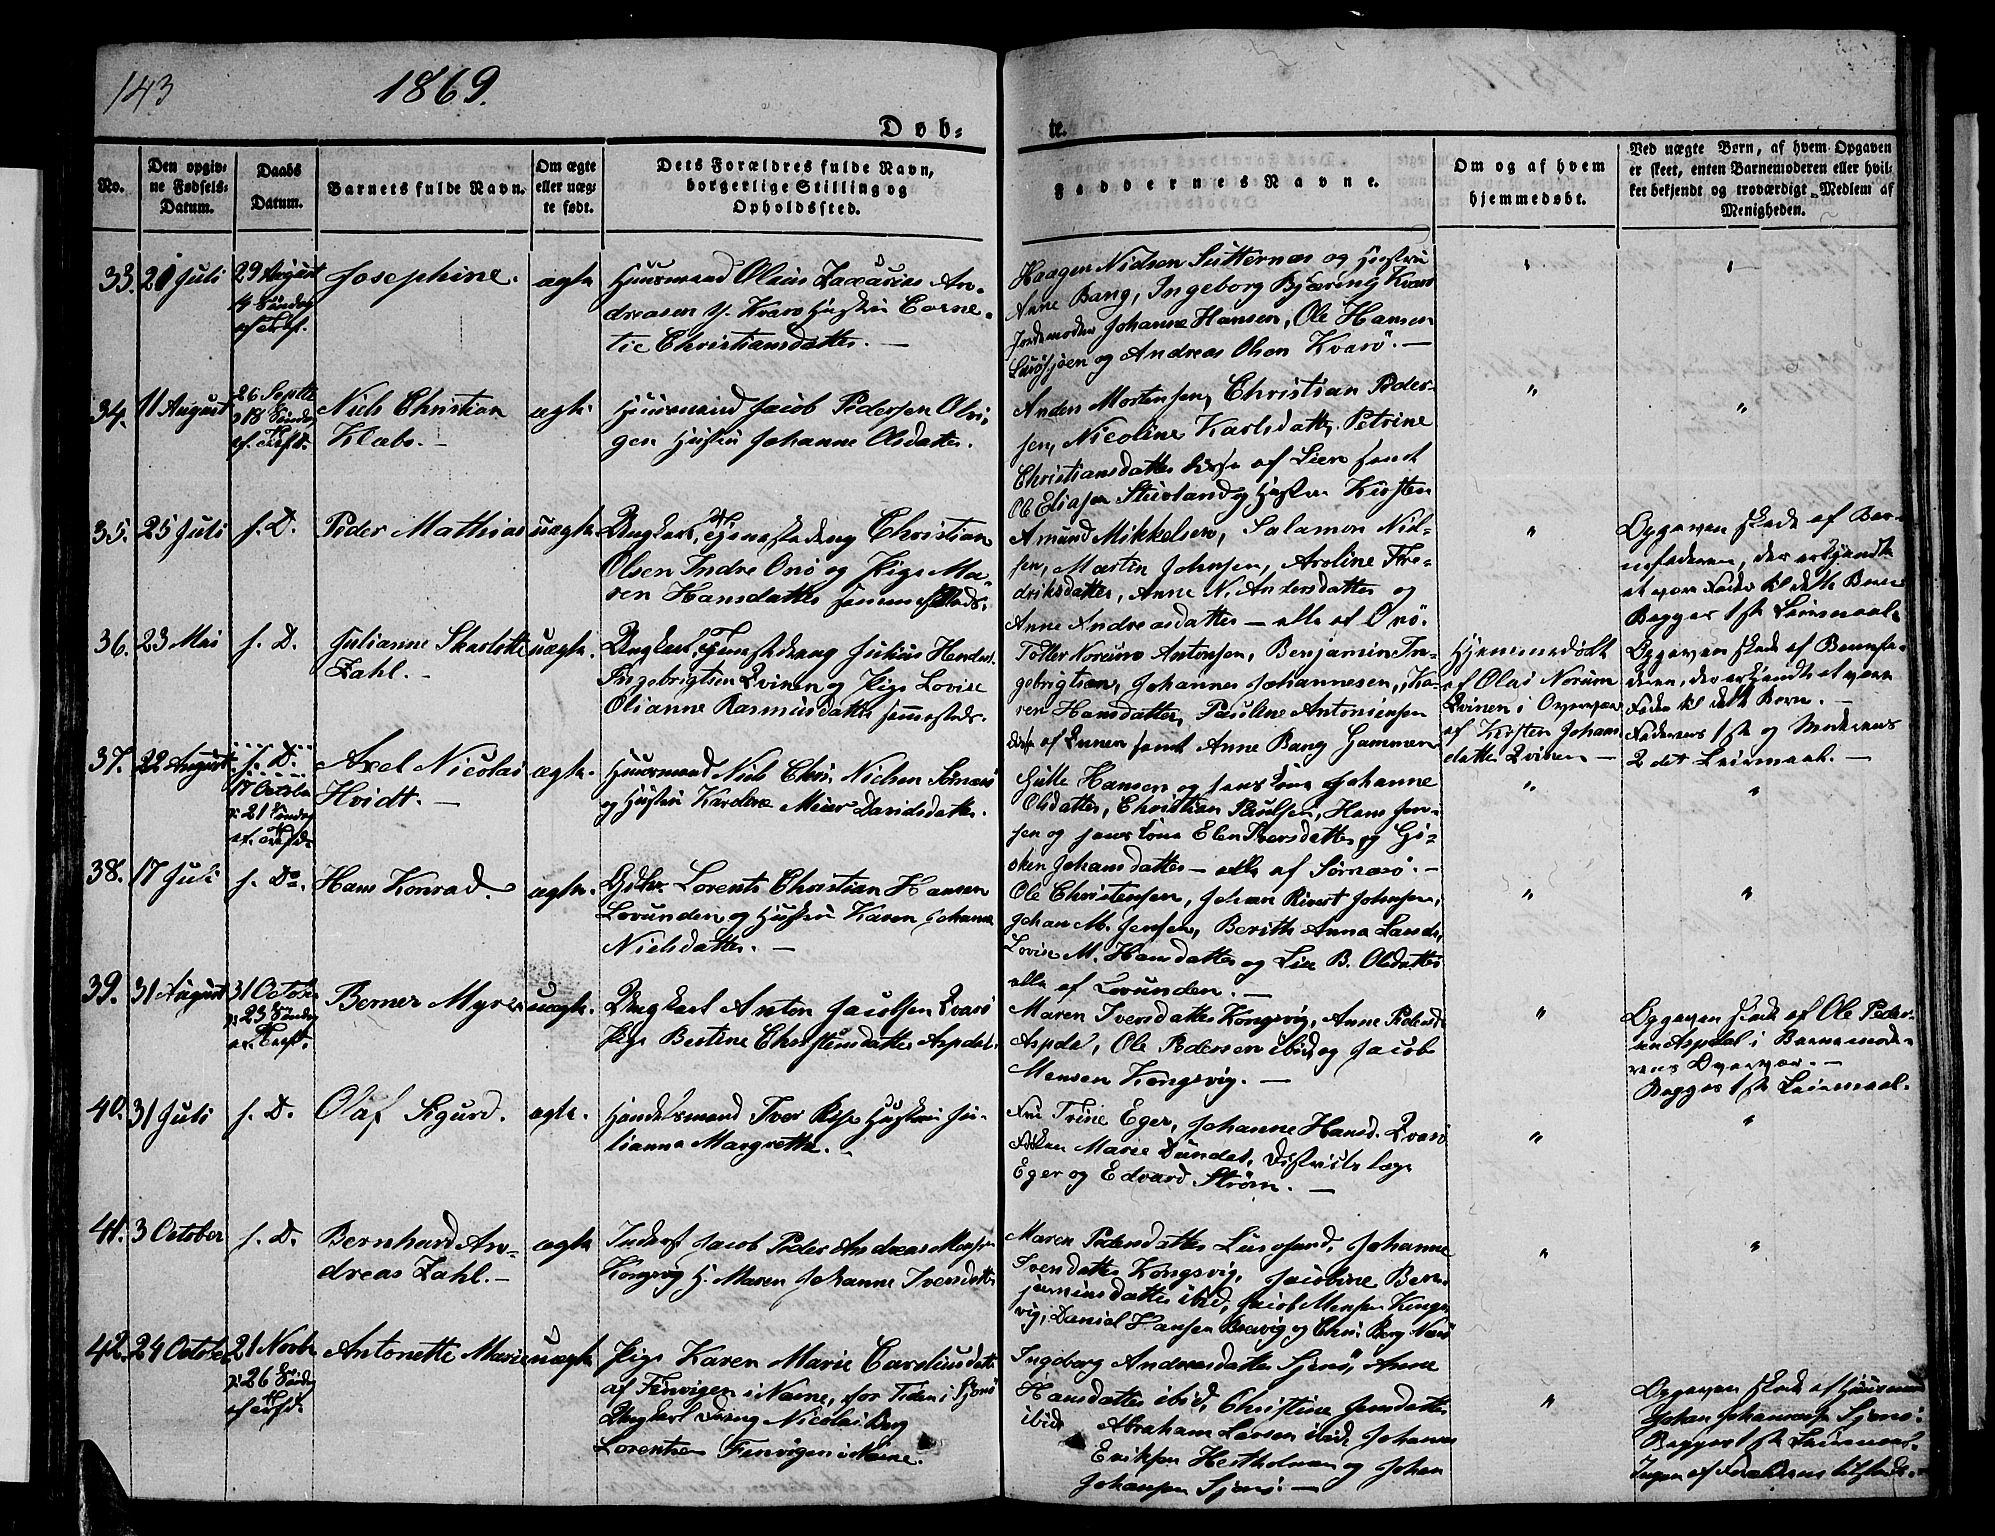 143
1869.
Døb-
te.
No.
Den opgiv-
ne Fødsels-
Datum.
Daabs
Datum.
Barnets fulde Navn.
Om ægte
eller uæg-
te født.
Dets Forældres fulde Navn,
borgerlige Stilling og
Opholdssted.
Faddernes Navne.
Om og af hvem
hjemmedøbt.
Ved uægte Børn, af hvem Opgaven
er skeet, enten Barnemoderen eller hvil-
ket bekjendt og troværdigt Medlem af
Menigheden.
33.
Juli
29 August
Josephine.
ægte
Huusmand Olaus Zacarias An-
dreasen Kvarø Hustru Corne-
lie Christiansdatter. —
Haagen Nielsen Sutternæs og Hustru
Anne Bang, Ingeborg Bjæring Kvarø
Jordemoder Johanne Hansen, Ole Hansen
og Andreas Olsen Kvarø. —
"
34.
11 August
26 Septbr
18 Søndag
Niels Christian
Klæbo. —
ægte
Huusmand Jacob Pedersen Olvi-
gen Hustru Johanne Olsdatter.
Anders Mortensen, Christian Peder-
sen, Nicoline Karlsdatter, Petrine
Christiansdatter disse af Lien samt
Ole Eliasen Stuvland og Hustru Kirsten
"
"
35.
25 Juli
s. D.
Peder Mathias
uægte
Ungkarl, Tjenestedreng Christian
Olsen Indre Onø og Pige Ma-
ren Hansdatter sammesteds.
Amund Mikkelsen, Salamon Niel-
sen, Martin Johnsen, Aroline Fre-
driksdatter, Anne N. Andersdatter og
Anne Andreasdatter — alle af Onø.
"
Opgaven skede af Bar-
nefaderen, der erkjendte
at være Fader til dette Barn
Begges 1ste Leiermaal.
36.
23 Mai
s. D.
Julianne Skarlotte
Zahl. —
uægte.
Ungkarl, Tjenestedreng Julius
Ingebrigtsen Qvinen og Pige Lovise
Olianne Rasmusdatter sammesteds.
Totler Norum Antonsen, Benjamin In-
gebrigtsen, Johannes Johannesen, Ka-
ren Hansdatter, Pauline Antonsen
disse af Qvinen samt Anne Bang Hammeren
Hjemmedøbt
af Olai Norum
Qvinen i Overvær
af Kirsten Johans
datter Qvinen —
Opgaven skede af Barnefa-
deren, der erkjendte at være
Fader til dette Barn. —
Faderens 1ste og Moderens
2det Leiermaal. —
37.
22 August
s. D.
17 October
21 Søndag
Axel Nicolai
Hvidt. —
ægte.
Huusmand Niels Chri. Nielsen Sørnæsø
og Hustru Kardine Meier Davidsdatter.
Gutle Hansen og hans Kone Johanne
Olsdatter, Christian Paulsen, Hans Jen-
sen og hans Kone Elen Iversdatter og Gi-
sken Johansdatter — alle af Sørnæsø. —
"
"
38.
17 Juli
s. D.
Hans Konrad
ægte.
Gdbr. Lorents Christian Hansen
Lovunden og Hustru Karen Johanna
Nielsdatter. —
Ole Christensen, Johan Rivert Johnsen,
Johan M. Jensen, Berith Anna Larsd.,
Lovise M. Hansdatter og Lise B. Olsdatter
alle af Lovunden. —
"
"
39.
31 August
31 October
23 Søndag
Berner Myre
uægte.
Ungkarl Anton Jacobsen Qvarø
Pige Bertine Christensdatter Aspdal.
Maren Iversdatter Kongsvig, Anne Pedersd.
Aspdal, Ole Pedersen ibid og Jacob
Monsen Kongsvig. —
"
Opgaven skede af Ole Peder-
sen Aspdal i Barnemode-
rens Overvær. —
Begges 1ste Leiermaal.
40.
31 Juli
s. D.
Olaf Sigurd.
ægte.
Handelsmand Iver Hustru Ju-
lianna Margrethe.
Fru Trine Eger, Johanne Hansd. Qvarø
Frøken Marie Dundas, Distriktslæge
Eger og Edvard Strøm. —
"
"
41.
3 October
s. D.
Bernhard An-
dreas Zahl. —
ægte
Inderst Jacob Peder Andreas Monsen
Kongsvig H. Maren Johanne Iversdatter
Maren Pedersdatter Lurøsund, Johanne
Iversdatter Kongsvig, Jacobine Ben-
jaminsdatter ibid, Jacob Monsen Kongs-
vig, Daniel Hansen Bravig og Chri. Berg Næsø
"
"
42.
24 October
21 Novbr
26 Søndag
Antonette Marie
uægte
Pige Karen Marie Caroliusdatter
af Finvigen i Næsne, for Tiden i Sjonø
Ungkarl Dreng Nicolai Berg
Lorentsen Finvigen i Næsne.
Ingeborg Andreasdatter Sjonø, Anne
Hansdatter ibid, Christine Jensdatter
ibid, Abraham Larsen ibid, Johannes
Eriksen Hestholmen og Johan
Johansen Sjonø. —
"
Opgaven skede af Huusmand
Johan Johansen Sjonø:
Begges 1ste Leiermaal.
Ingen af Forældrene tilstede.